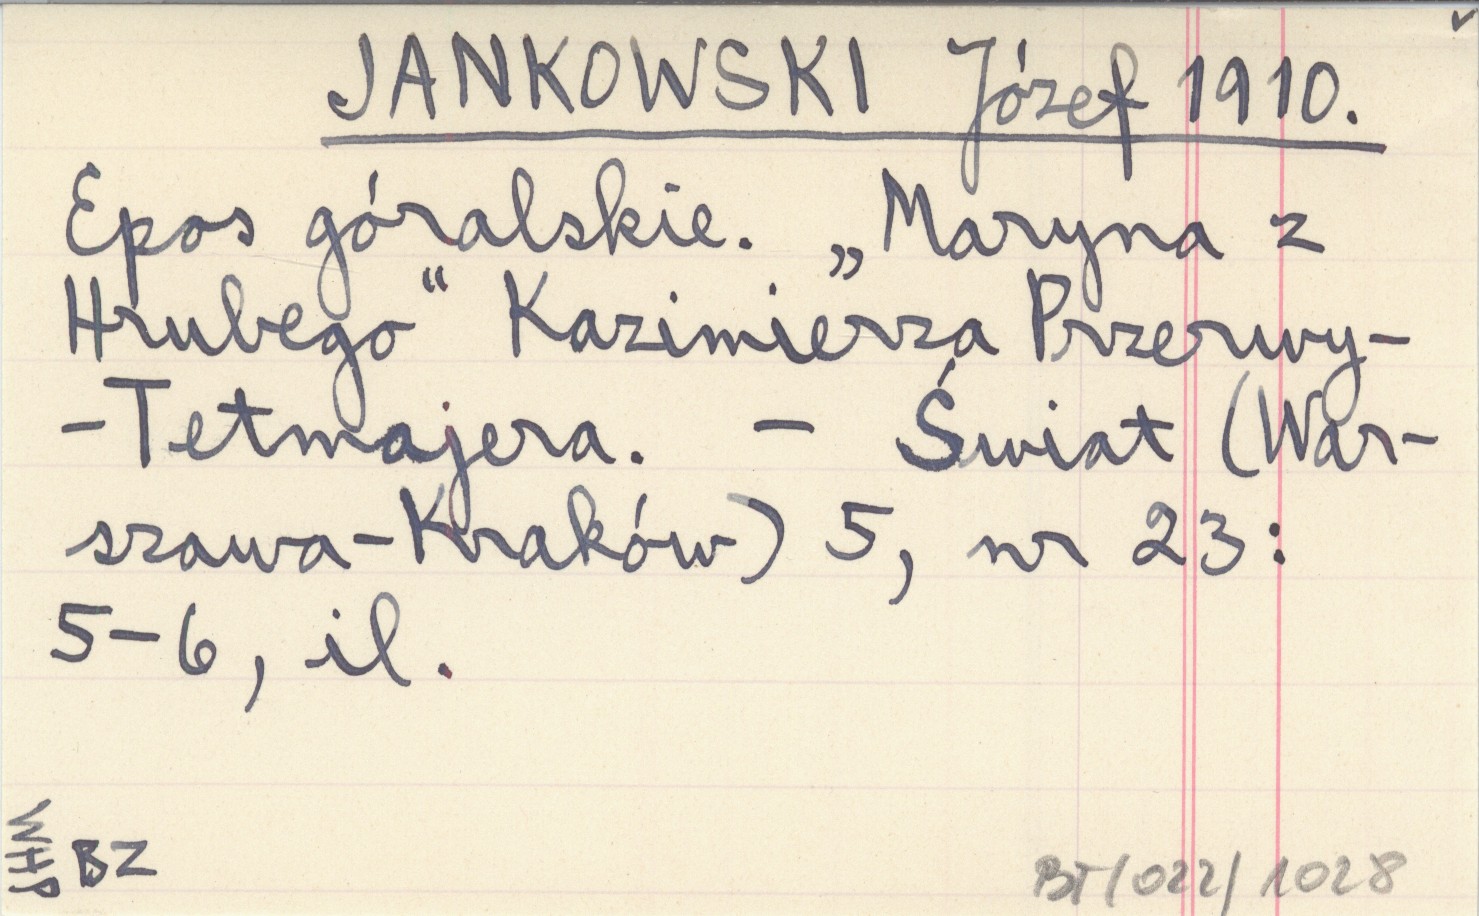 JANKOWSKI Józef 1910.
Epos góralskie. „Maryna z
Hrubego“ Kazimierza Przerwy-
-Tetmajera. - Świat (War-
szawa-Kraków) 5, nr 23:
5-6, il.
WHP
BZ
BT/022/1028